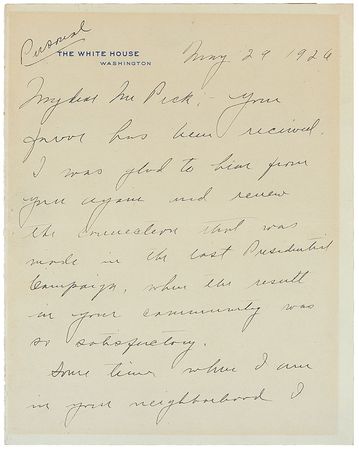 Personal
THE WHITE HOUSE
WASHINGTON
May 29 1926
My dear Mr Peck:- Your
favor has been received.
I was glad to hear from
you again and renew
the connection that was
made in the last Presidential
Campaign, when the result
in your community was
so satisfactory.
Some time when I am
in your neighborhood I